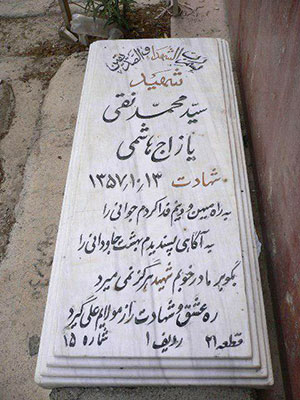 بسم رب الشهداء و الصدیقین
شهید
سید محمد تقی
یازاج هاشمی
شهادت ۱۳۵۷/۱۰/۱۳
به راه میهن و دینم فدا کردم جوانی را
به آگاهی پسندیدم بهشت جاودانی را
بگو بر مادر خوبم شهید هرگز نمی میرد
ره عشق و شهادت را ز مولایم علی گیرد
قطعه ۲۱ ردیف ۱ شماره ۱۵